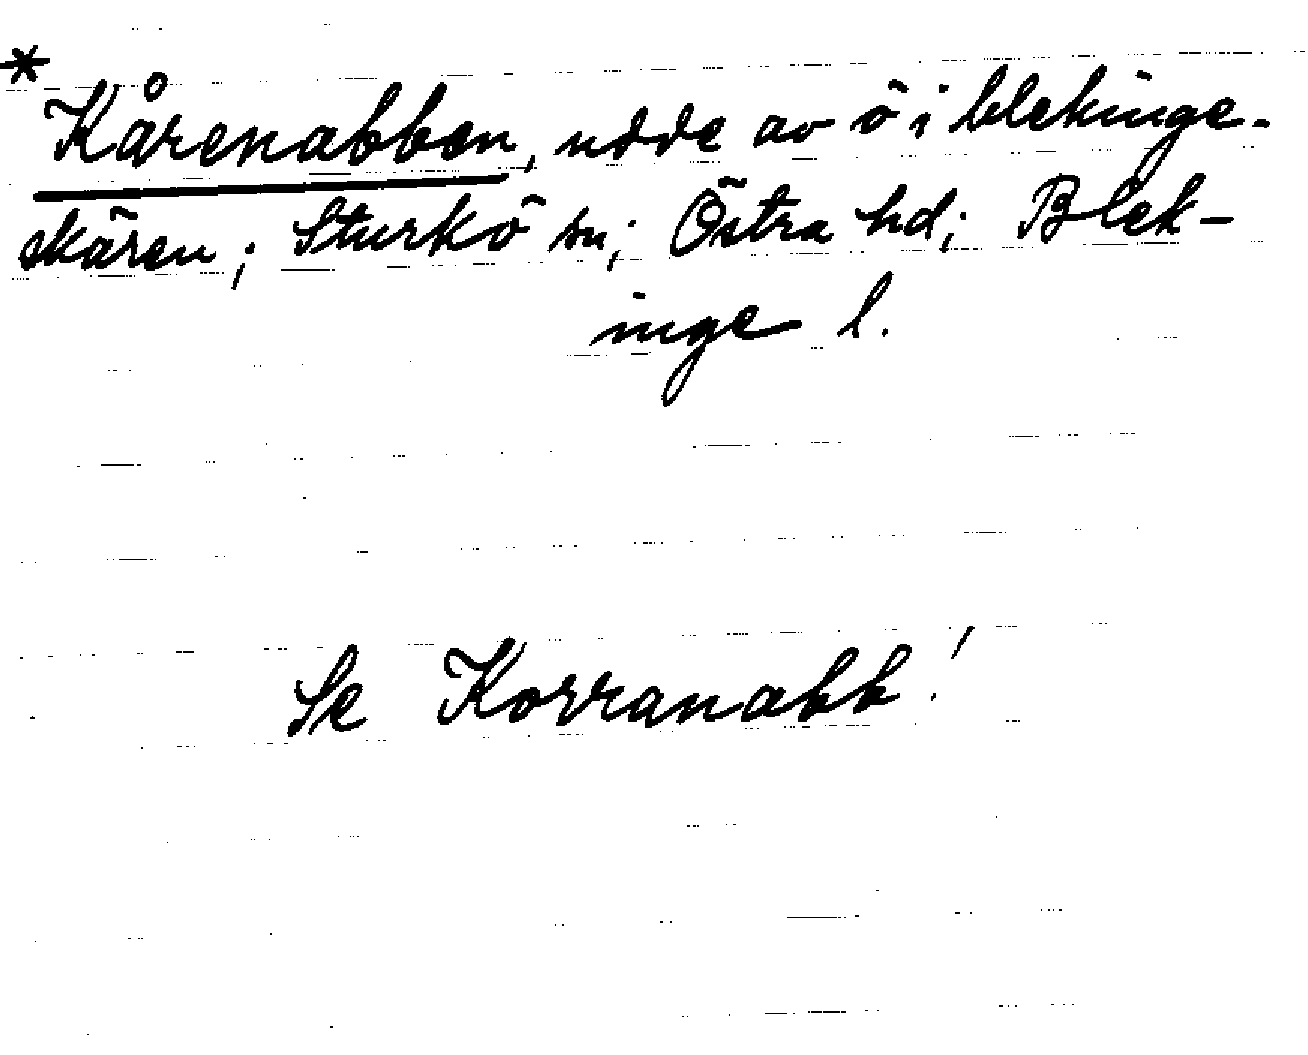 * Kårenabben, udde av ö i blekinge-
skären; Sturkö sn; Östra hd; Blek-
inge l.
Se Korranabb!